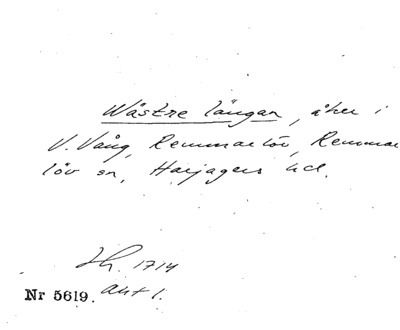 Wästre längan, åker i
V. Vång, Remmarlöv, Remmar
löv sn, Harjagers hd.
Lh. 1714
Nr 5619. Akt 1.